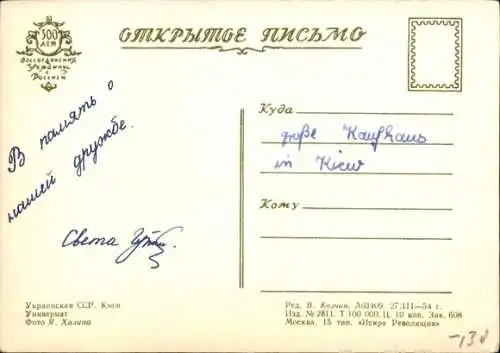 300
ЛЕТ
Воссоединения
Украины
с
Россией
ОТКРЫТОЕ ПИСЬМО
В память о
нашей дружбе.
Света
Куда
große Kaufhaus
in Kiew
Кому
Украинская ССР. Киев
Универмаг
Фото Я. Халипа
Ред. В. Колчин. А03409. 27/III—54 г.
Изд. № 2811. Т 100 000. Ц. 10 коп. Зак. 608
Москва. 15 тип. «Искра Революции»